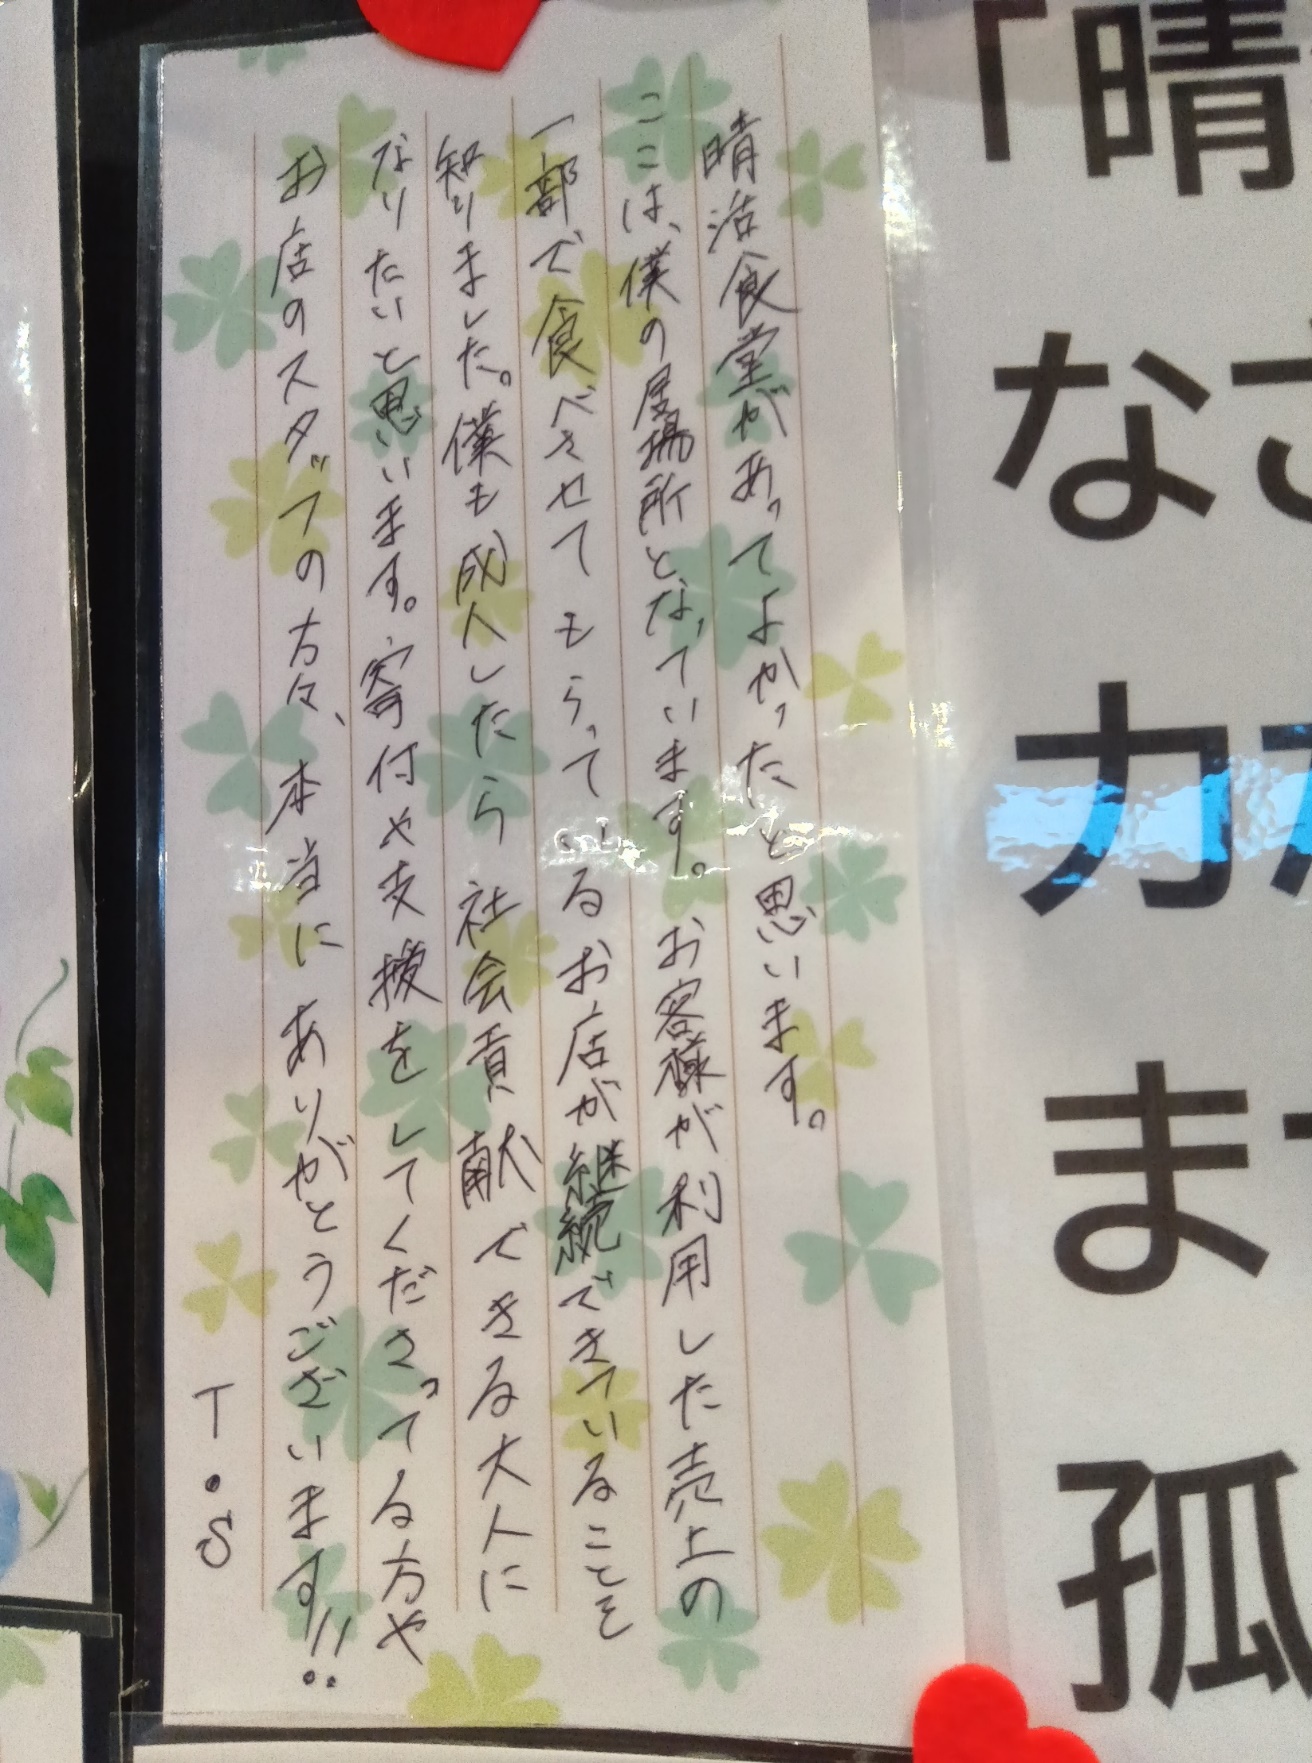 「晴
なご
力
ま
孤
晴活食堂があってよかったと思います。
ここは、僕の居場所となっています。お客様が利用した売上の
一部で食べさせてもらっているお店が継続できていることを
知りました。僕も成人したら社会貢献できる大人に
なりたいと思います。寄付や支援をしてくださってる方や
お店のスタッフの方々、本当にありがとうございます!!
T・S